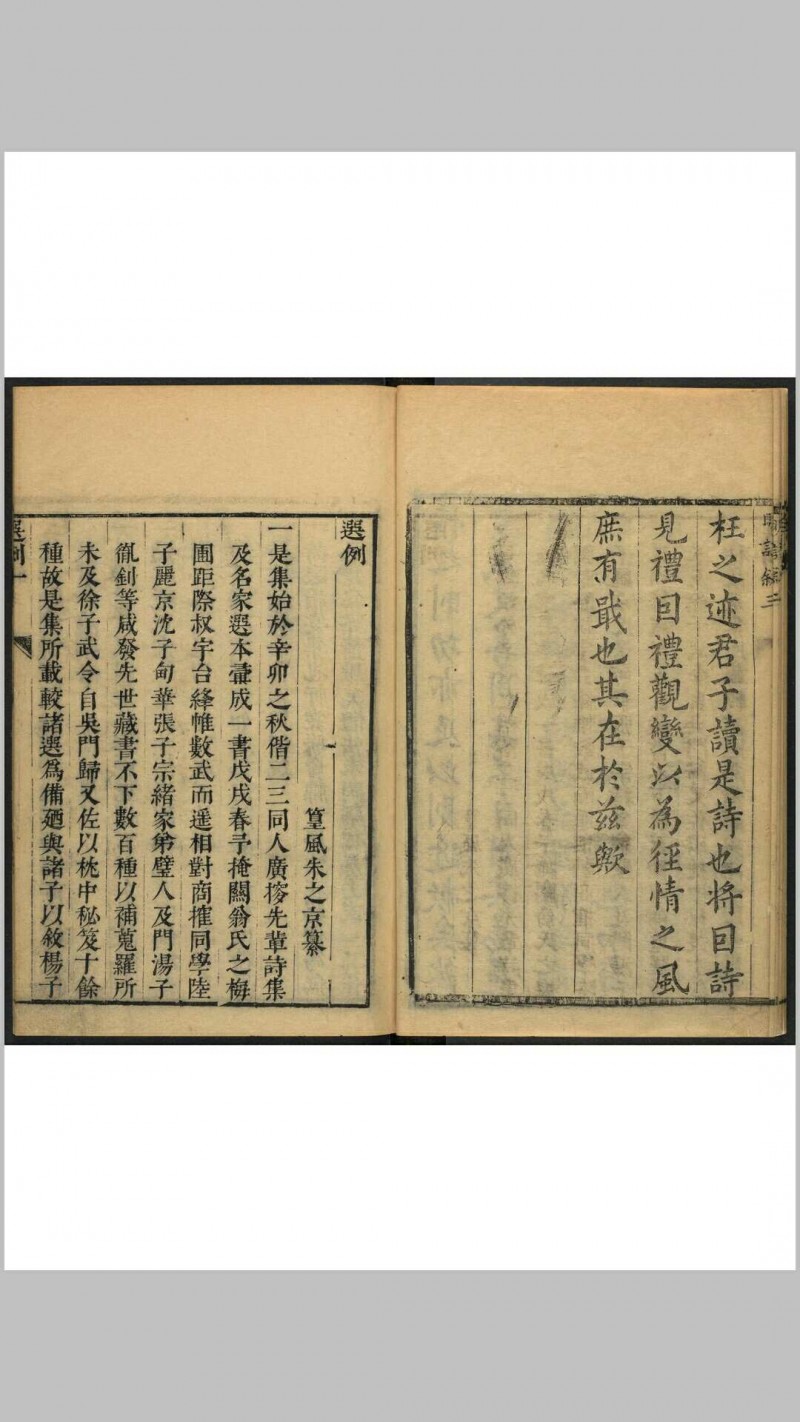 枉之迹君子讀是詩也将因詩
見禮因禮觀變以為徑情之風
庶有戢也其在於兹歟
選例
篁風朱之京纂
一是集始於辛卯之秋偕二三同人廣搜先輩詩集
及名家選本彙成一書戊戌春予掩關翁氏之梅
圃距際叔宇台絳帷數武而遥相對商搉同學陸
子麗京沈子甸華張子宗緒家弟璧人及門湯子
胤釗等咸發先世藏書不下數百種以補蒐羅所
未及徐子武令自吳門歸又佐以枕中秘笈十餘
種故是集所載較諸選爲備廼與諸子以敘楊子
選例一